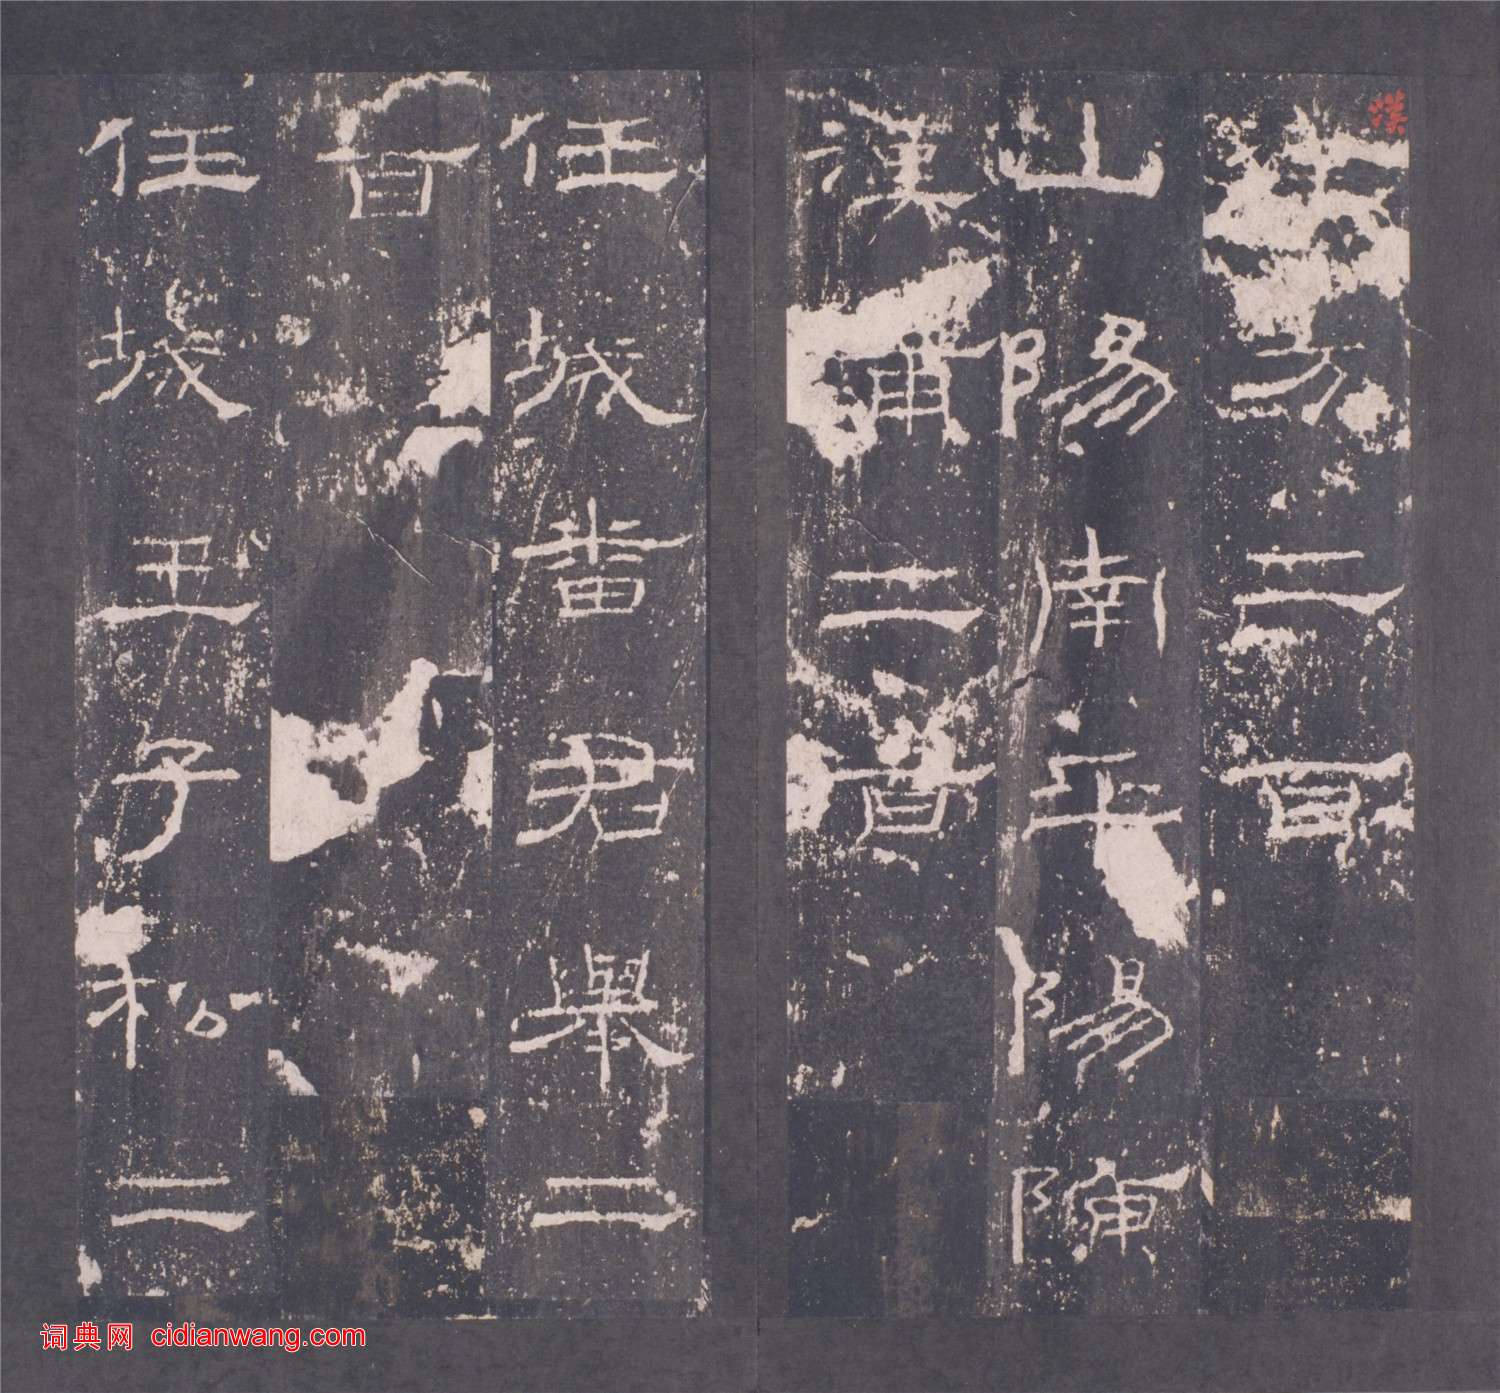 漢
方二百
山陽南平陽陳
漢甫二百
任城番君舉二
百
任城王子松二
词典网 cidianwang.com